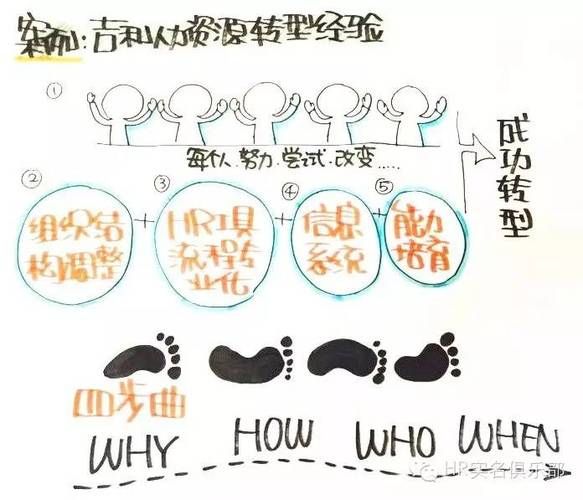 案例:吉利人力资源转型经验
①
每个人.努力.尝试.改变......
成功转型
② ③ ④ ⑤
组织结构调整
+
HR工具流程专业化
+
信息系统
+
能力培育
四步曲
WHY HOW WHO WHEN
HR实名俱乐部